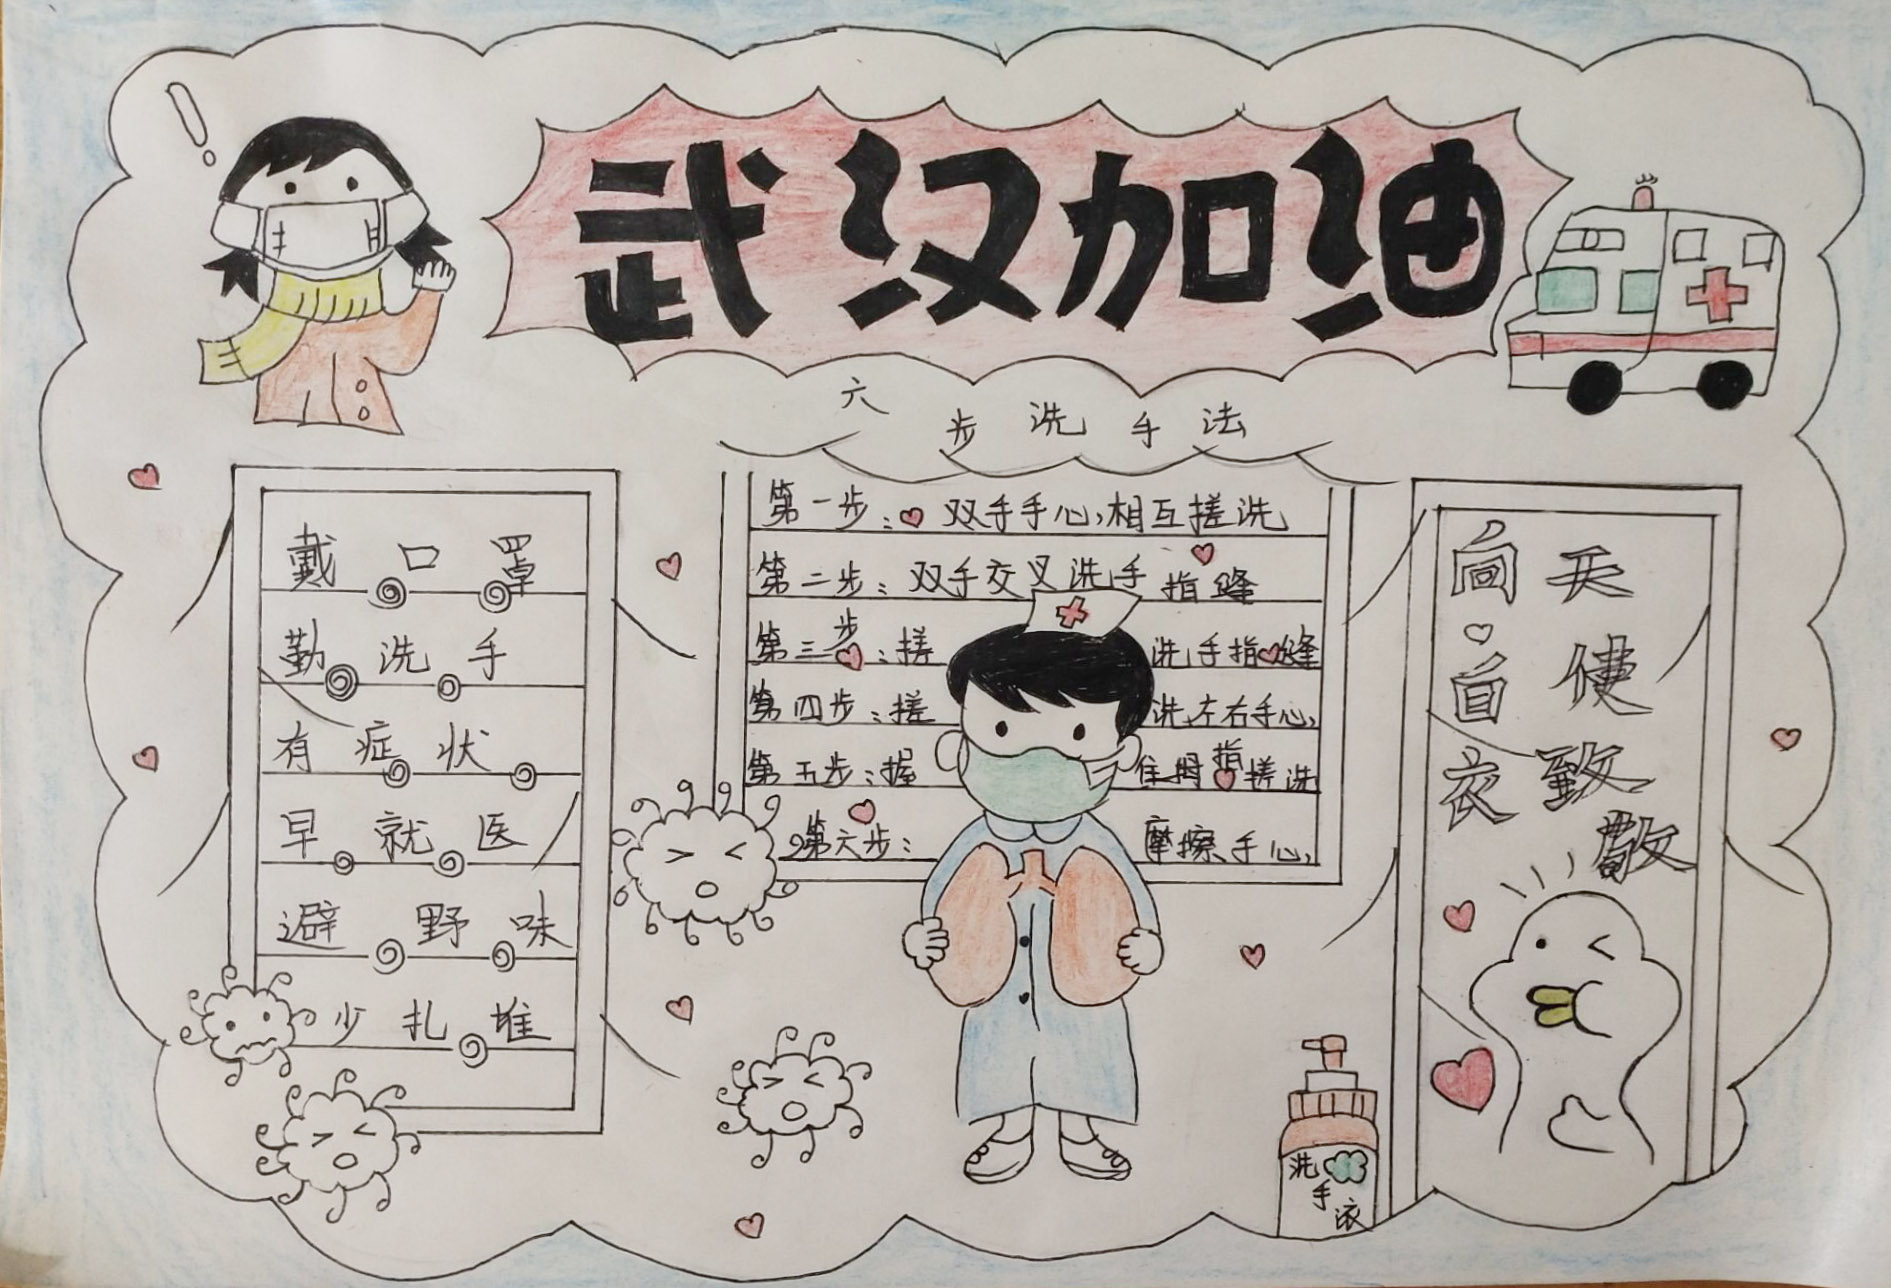 武汉加油
六步洗手法
戴口罩
勤洗手
有症状
早就医
避野味
少扎堆
第一步：双手手心，相互搓洗
第二步：双手交叉洗手指缝
第三步：搓洗手指缝
第四步：搓洗左右手心，
第五步：握住拇指搓洗
第六步：摩擦手心，
向白衣
天使致敬
洗手液